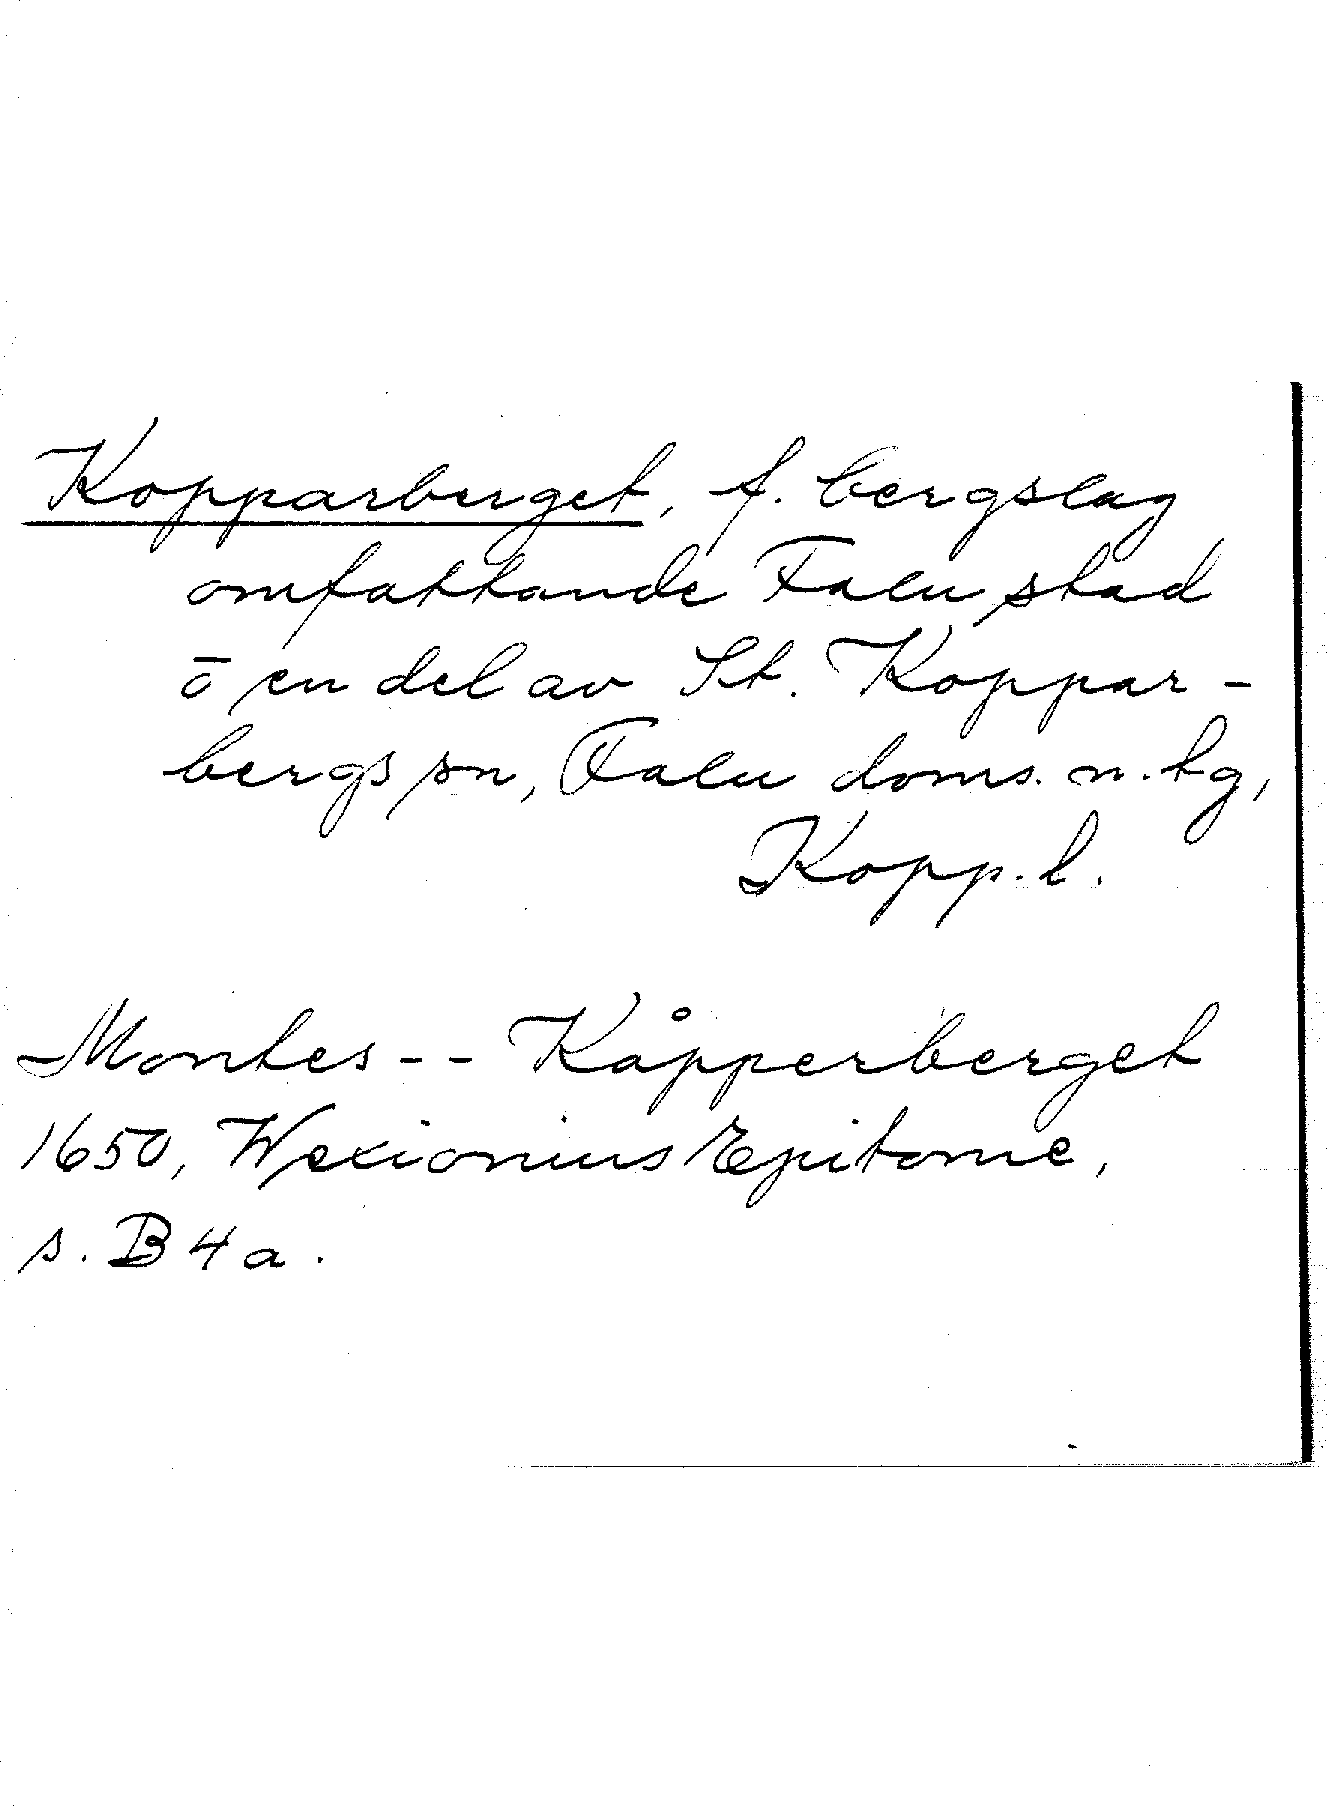 Kopparberget, f. bergslag
omfattande Falu stad
ō en del av St. Koppar-
bergs sn, Falu doms. n. tg,
Kopp. l.
Montes -- Kåpperberget
1650, Wexionius Epitome,
s. B 4 a.